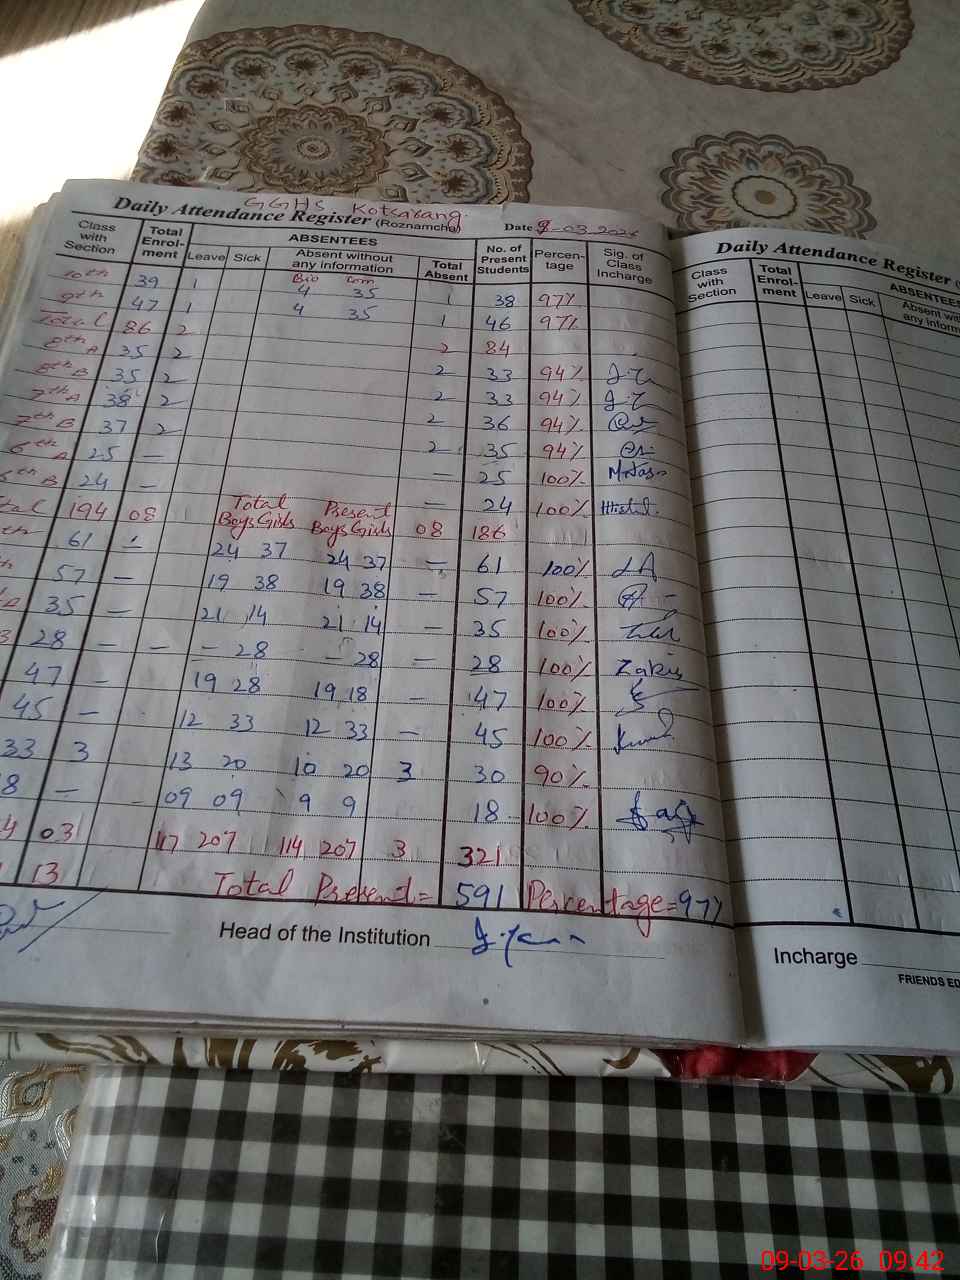 GGHS Kotsarang.
Daily Attendance Register (Roznamcha) Date 9-03-2026
Class with Section Total Enrol-ment ABSENTEES Leave Sick Absent without any information Total Absent No. of Present Students Percen-tage Sig. of Class Incharge
Bio Com
10th 39 1 4 35 1 38 97%
9th 47 1 4 35 1 46 97%
Total 86 2 2 84
8th A 35 2 2 33 94%
8th B 35 2 2 33 94%
7th A 38 2 2 36 94%
7th B 37 2 2 35 94%
6th A 25 — — 25 100%
6th B 24 — — 24 100%
tal 194 08 Total Present 08 186
Boys Girls Boys Girls
th 61 — 24 37 24 37 — 61 100%
57 — 19 38 19 38 — 57 100%
A 35 — 21 14 21 14 — 35 100%
B 28 — — — 28 — 28 — 28 100% Zakia
47 — 19 28 19 18 — 47 100%
45 — 12 33 12 33 — 45 100%
33 3 13 20 10 20 3 30 90%
8 — 09 09 9 9 18 100%
4 03 117 207 114 207 3 321
13
Total Present = 591 Percentage = 97%
Head of the Institution
Daily Attendance Register
Class with Section Total Enrol-ment ABSENTEES Leave Sick Absent any inform
Incharge
FRIENDS ED
09-03-26 09:42